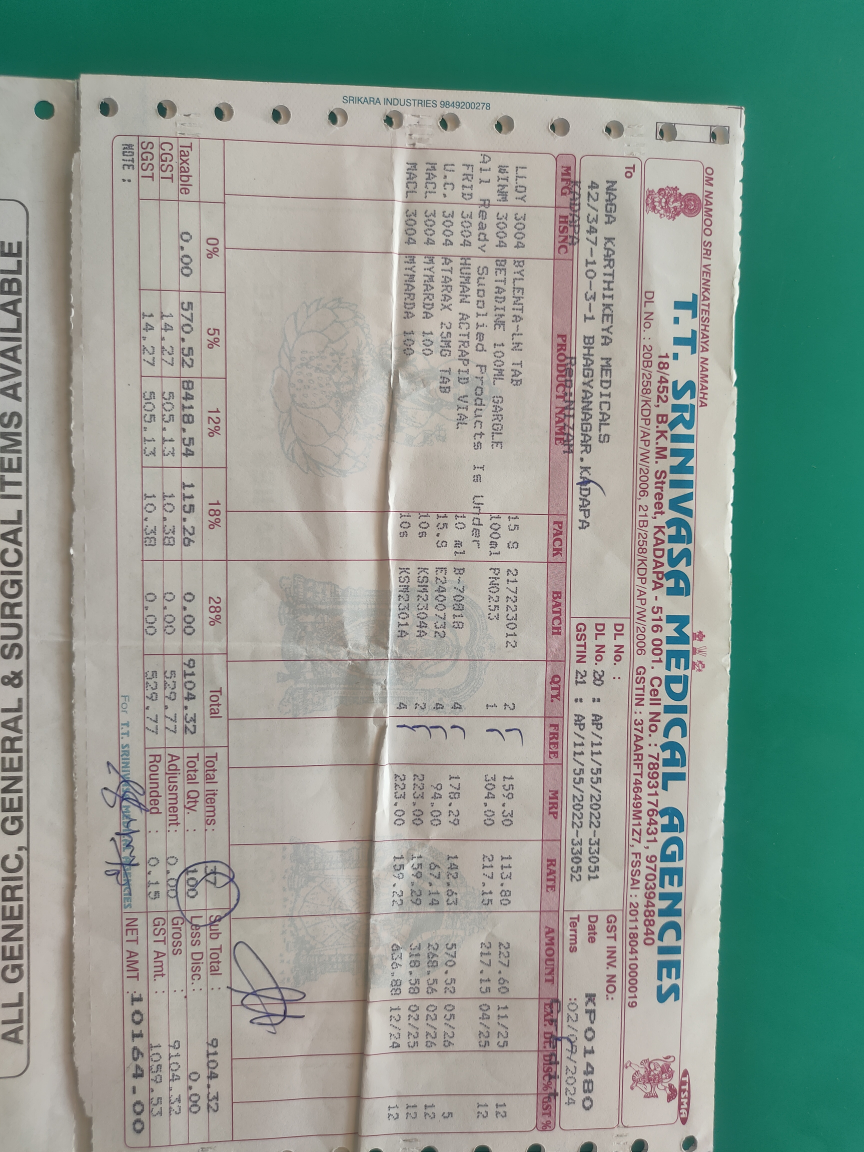 SRIKARA INDUSTRIES 9849200278
OM NAMOO SRI VENKATESHAYA NAMAHA
TTSMA
T.T. SRINIVASA MEDICAL AGENCIES
18/452, B.K.M. Street, KADAPA - 516 001. Cell No. : 7893176431, 9703948840
DL No. : 20B/258/KDP/AP/W/2006, 21B/258/KDP/AP/W/2006 GSTIN : 37AARFT4649M1Z7, FSSAI : 20118041000019
To
NAGA KARTHIKEYA MEDICALS
42/347-10-3-1 BHAGYANAGAR.KADAPA
KADAPA Rep:NIZAM
DL No. :
DL No. 20 : AP/11/55/2022-33051
GSTIN 21 : AP/11/55/2022-33052
GST INV. NO.:
Date KP01480
Terms :02/07/2024
Credit
MFG HSNC PRODUCT NAME PACK BATCH QTY. FREE MRP RATE AMOUNT EXP. DT. DISC% GST %
LLDY 3004 BYLENTA-LN TAB 15 S 217223012 2 159.30 113.80 227.60 11/25 12
WINM 3004 BETADINE 100ML GARGLE 100ml PN0253 1 304.00 217.15 217.15 04/25 12
All Ready Supplied Products Is Under
FRID 3004 HUMAN ACTRAPID VIAL 10 ml B-70818 4 178.29 142.63 570.52 05/26 5
U.C. 3004 ATARAX 25MG TAB 15.S E2400732 4 94.00 67.14 268.56 02/26 12
MACL 3004 MYMARDA 100 10s KSM2304A 2 223.00 159.29 318.58 02/25 12
MACL 3004 MYMARDA 100 10s KSM2301A 4 223.00 159.22 636.88 12/24 12
0% 5% 12% 18% 28% Total Total items : 37 Sub Total : 9104.32
Taxable 0.00 570.52 8418.54 115.26 0.00 9104.32 Total Qty. : 100 Less Disc.: 0.00
CGST 14.27 505.13 10.38 0.00 529.77 Adjusment : 0.00 Gross : 9104.32
SGST 14.27 505.13 10.38 0.00 529.77 Rounded : 0.15 GST Amt. : 1059.53
NOTE : For T.T. SRINIVASA MEDICAL AGENCIES NET AMT : 10164.00
ALL GENERIC, GENERAL & SURGICAL ITEMS AVAILABLE